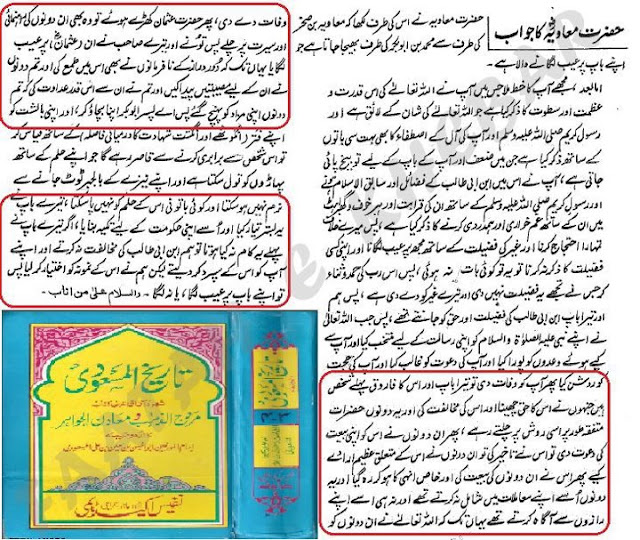 حضرت معاویہؓ کا جواب
حضرت معاویہ نے اس کی طرف لکھا کہ معاویہ بن صخر
کی طرف سے محمد بن ابوبکر کی طرف بھیجا جاتا ہے جو
اپنے باپ پر عیب لگانے والا ہے۔
اما بعد! مجھے آپ کا خط ملا جس میں آپ نے اللہ تعالےٰ کی اس قدرت و
عظمت اور سطوت کا ذکر کیا ہے جو اللہ تعالےٰ کی شان کے لائق ہے اور
رسول کریم صلی اللہ علیہ وسلم اور آپ کی آل کے اصطفاء کا بھی بہت سی باتوں
کے ساتھ ذکر کیا ہے جن میں ضعف اور آپ کے باپ کے لیے توبیخ پائی
جاتی ہے، آپ نے اس میں ابن ابی طالب کے فضائل اور سابق الاسلام ہونے
اور رسول کریم صلی اللہ علیہ وسلم کے ساتھ ان کی قرابت اور ہر خوف و
میں ان کے ساتھ غم خواری اور ہمدردی کرنے کا ذکر کیا ہے، پس میرے خلاف
تمہارا احتجاج کرنا اور غیر کی فضیلت کے ساتھ مجھ پر عیب لگانا اور اپنی کسی
فضیلت کا ذکر نہ کرنا تو یہ تو کوئی بات نہ ہوئی، پس اس رب کی حمد و ثناء
کر جس نے تجھے یہ فضیلت نہیں دی اور تیرے غیر کو دے دی ہے، پس ہم
اور تیرا باپ ابن ابی طالب کی فضیلت اور حق کو جانتے تھے، پس جب اللہ تعالیٰ
نے اپنے نبی علیہ الصلوٰۃ والسلام کو اپنی رسالت کے لیے منتخب کیا اور آپ سے
کیے ہوئے وعدوں کو پورا کیا اور آپ کی دعوت کو غالب کیا اور آپ کی حجت
کو روشن کیا پھر آپ کو وفات دی تو تیرا باپ اور اس کا فاروق پہلے شخص
ہیں جنہوں نے اس کا حق چھینا اور اس کی مخالفت کی اور یہ دونوں حضرات
متفقہ طور پر اسی روش پر چلتے رہے، پھر ان دونوں نے اس کو اپنی بیعت
کی دعوت دی تو اس نے تاخیر کی تو ان دونوں نے اس کے متعلق عظیم ارادے
کیے پھر اس نے ان دونوں کی بیعت کی اور خاص انہی کا ہو کر رہ گیا اور یہ
دونوں اُسے اپنے معاملات میں شامل نہ کرتے تھے اور نہ ہی اسے اپنے
رازوں سے آگاہ کرتے تھے یہاں تک کہ اللہ تعالےٰ نے ان دونوں کو
وفات دے دی، پھر حضرت عثمان کھڑے ہوئے تو وہ بھی ان دونوں کی راہنمائی
اور سیرت پر چلے پس تو نے اور تیرے صاحب نے ان (عثمانؓ) پر عیب
لگایا یہاں تک کہ دور دراز کے نافرمانوں نے بھی اس میں طمع کی اور تم دونوں
نے ان کے لیے مصیبتیں پیدا کیں اور تم نے ان سے اس قدر عداوت کی کہ تم
دونوں اپنی مراد کو پہنچ گئے پس اے پسر ابوبکر اپنا بچاؤ کر، اور اپنی بالشت کو
اپنے فتر (انگوٹھے اور انگشت شہادت کا درمیانی فاصلہ) کے ساتھ قیاس کر
تو اس شخص سے برابری کرنے سے قاصر رہے گا جو اپنے حلم کے ساتھ
پہاڑوں کو تول سکتا ہے اور اپنے نیزے کے بالجبر ٹوٹ جانے سے
نرم نہیں ہو سکتا اور کوئی باتونی اس کے حلم کو نہیں پا سکتا، تیرے باپ نے
یہ بستر تیار کیا اور اُسے اپنی حکومت کے لیے تکیہ بنایا، اگر تیرے باپ نے
پہلے یہ کام نہ کیا ہوتا تو ہم ابن ابی طالب کی مخالفت نہ کرتے اور اپنے
آپ کو اس کے سپرد کر دیتے لیکن ہم نے اس کے نمونہ کو اختیار کر لیا پس
تو اپنے باپ پر عیب لگا، یا نہ لگا۔ والسلام علیٰ من اناب۔
تاریخ المسعودی
مروج الذہب و معادن الجواہر
نفیس اکیڈیمی